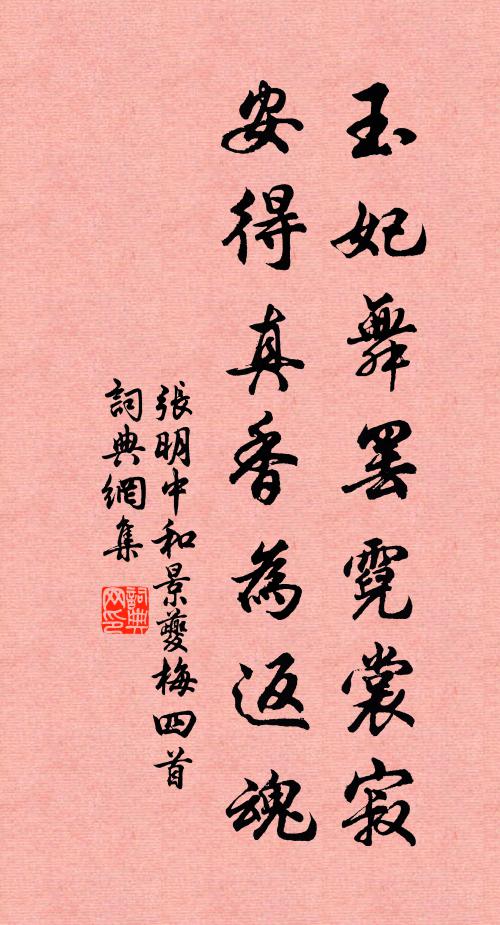 玉妃舞罢霓裳寂
安得真香為返魂
張明中和景夔梅四首
詞典網集
詞典网印